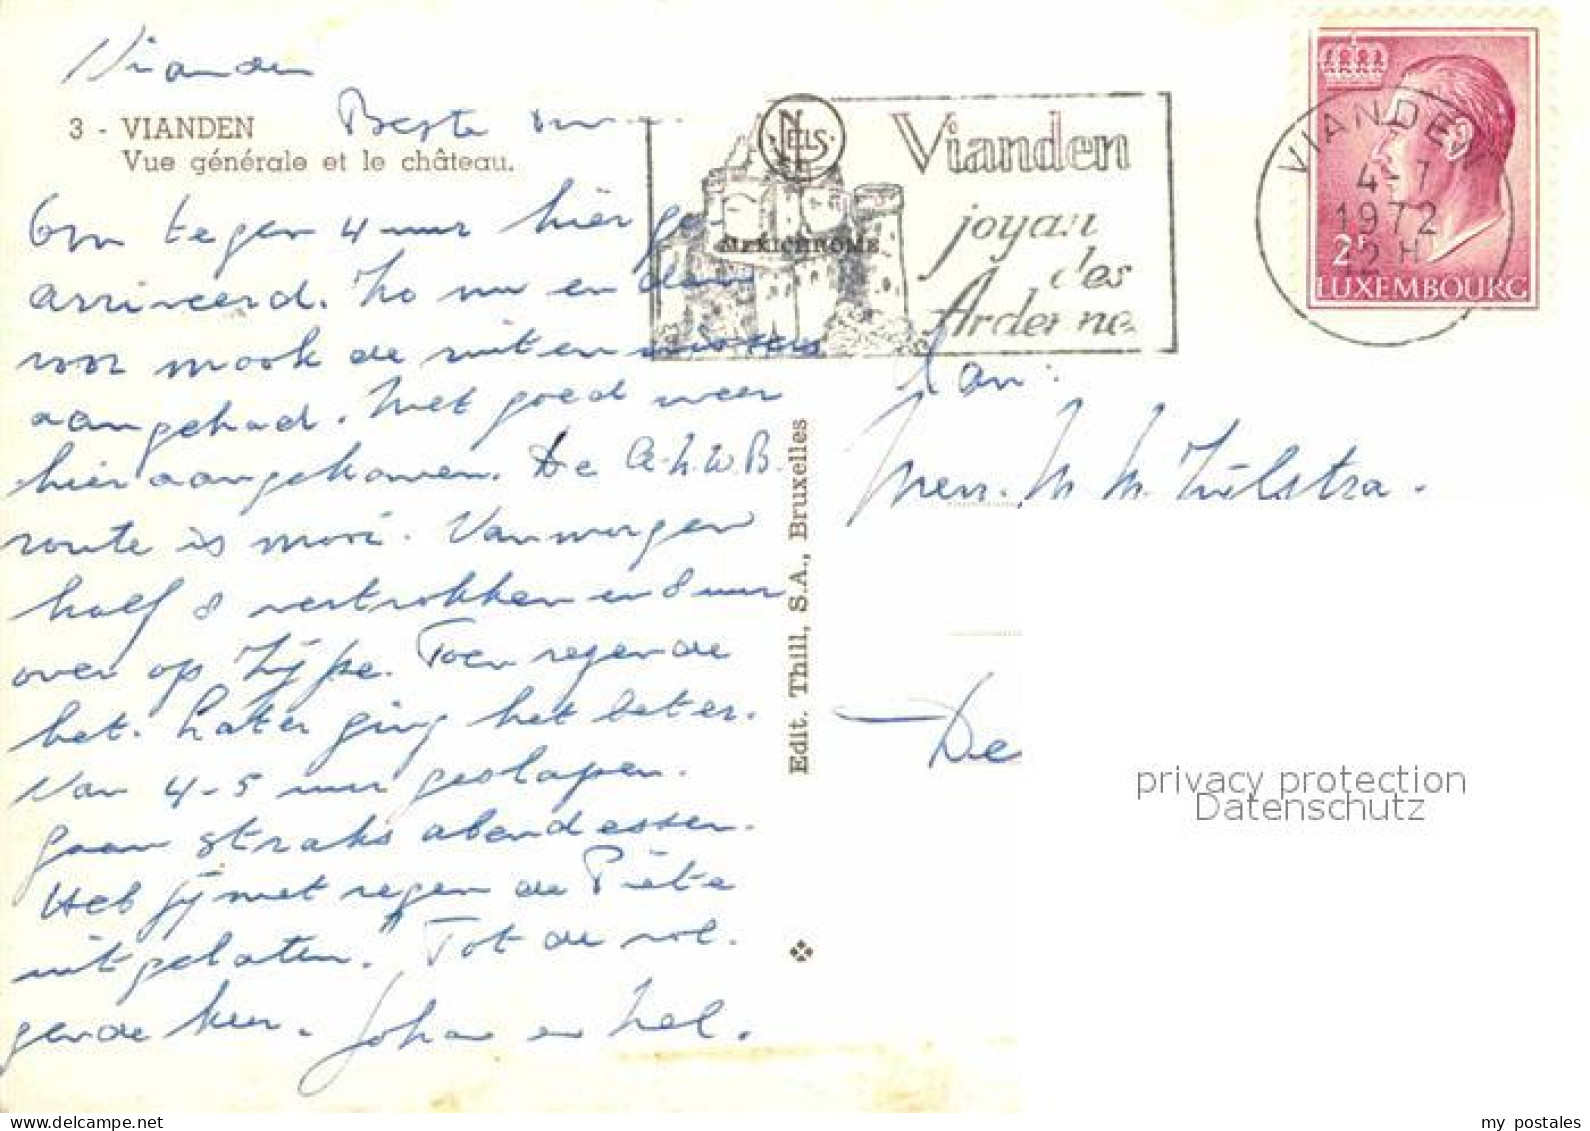 Vianden
3 - VIANDEN
Vue générale et le château.
Beste
Om tegen 4 uur hier
arriveerd. Zo nu en dan
ook de ruitenwissers
aangehad. Met goed weer
hier aangekomen. De A.N.W.B.
route is mooi. Vanmorgen
half 8 vertrokken en 8 uur
over op Zijpe. Toen regende
het. Later ging het beter.
Van 4-5 uur geslapen.
gaan straks avondessen.
Heb jij met regen de Piëte
uitgelaten. Tot de vol.
gende keer. Johan en Nel.
NELS
MEXICHROME
Vianden
joyau
des
Ardennes
VIANDEN
4-7
1972
12 H
2F
LUXEMBOURG
Aan:
Mevr. M. M. Zijlstra.
De
Edit. Thill, S.A., Bruxelles
privacy protection
Datenschutz
my postales